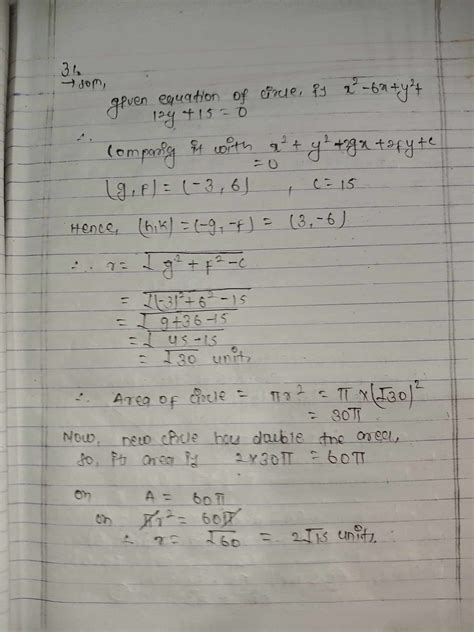 31.
→ som,
given equation of circle, is x² - 6x + y² +
12y + 15 = 0
∴
Comparing it with x² + y² + 2gx + 2fy + c
= 0
(g, f) = (-3, 6) , c = 15
Hence, (h,k) = (-g, -f) = (3, -6)
∴ r = √g² + f² - c
= √(-3)² + 6² - 15
= √9 + 36 - 15
= √45 - 15
= √30 units
∴ Area of circle = πr² = π × (√30)²
= 30π
Now, new circle has double the area,
so, its area is 2 × 30π = 60π
or A = 60π
or πr² = 60π
∴ r = √60 = 2√15 units.